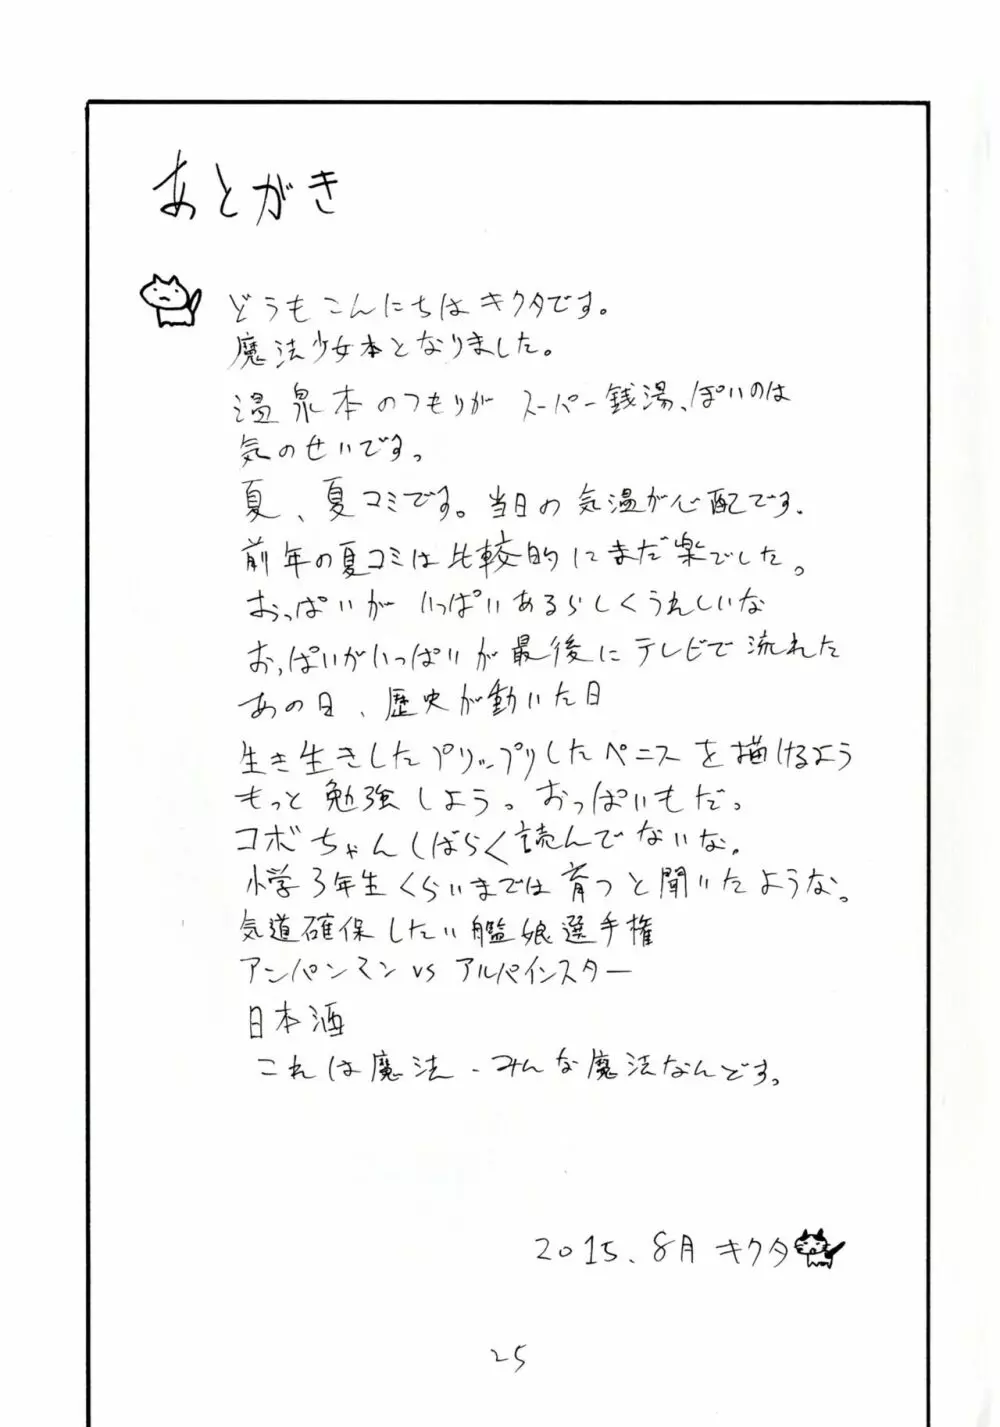 あとがき
どうもこんにちはキクタです。
魔法少女本となりました。
温泉本のつもりがスーパー銭湯っぽいのは
気のせいです。
夏、夏コミです。当日の気温が心配です。
前年の夏コミは比較的にまだ楽でした。
おっぱいがいっぱいあるらしくうれしいな
おっぱいがいっぱいが最後にテレビで流れた
あの日、歴史が動いた日
生き生きしたプリップリしたペニスを描けるよう
もっと勉強しよう。おっぱいもだっ
コボちゃんしばらく読んでないな。
小学3年生くらいまでは育つと聞いたような。
気道確保したい艦娘選手権
アンパンマン vs アルパインスター
日本酒
これは魔法、みんな魔法なんです。
2015.8月 キクタ
25